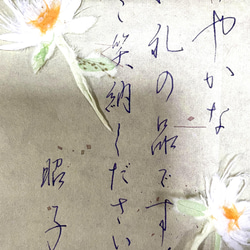 やかな
礼の品です
ご笑納ください
昭子